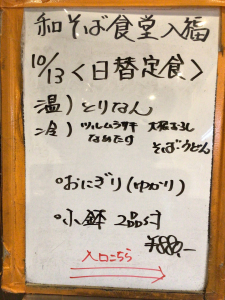 和そば食堂入福
10/13〈日替定食〉
温）とりなん
冷）ツルムラサキ 大根おろし
なめたけ そば・うどん
•おにぎり（ゆかり）
•小鉢 2品付
¥880,-
入口こちら